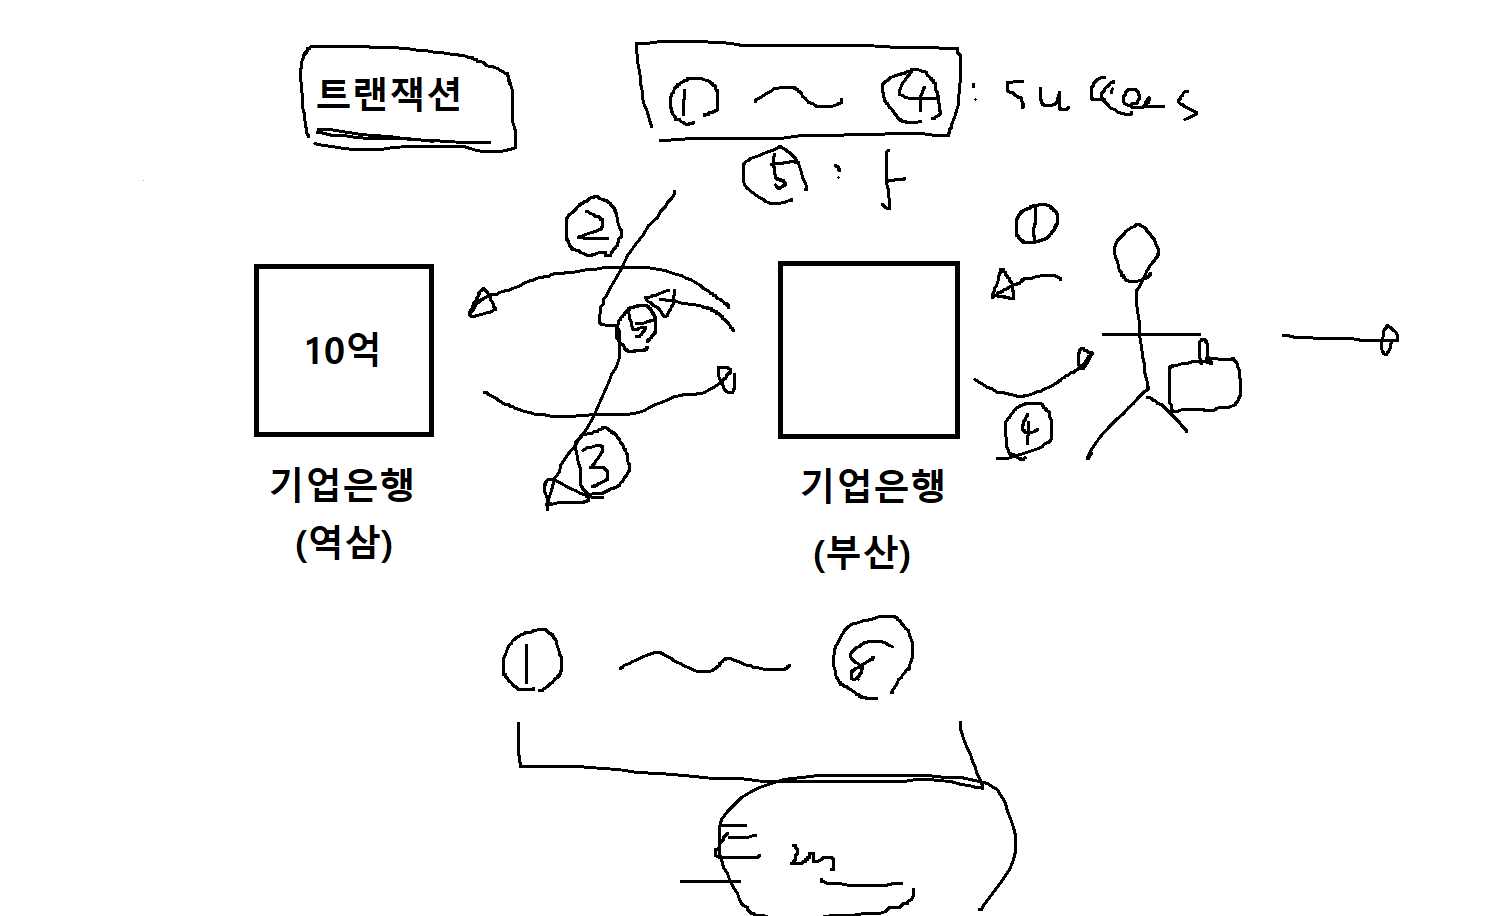 트랜잭션
① ~ ④ : success
⑤ : f
②
①
10억
⑤
④
③
기업은행
(역삼)
기업은행
(부산)
① ~